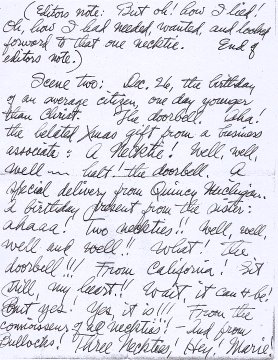 (Editors note: But oh! how I lied!
Oh, how I had needed, wanted, and looked
forward to that one necktie. End of
editors note.)
Scene two: Dec. 26, the birthday
of an average citizen, one day younger
than Christ. The doorbell. Aha!
the belated Xmas gift from a business
associate: A Necktie! Well, well,
well — halt! the doorbell. A
special delivery from Quincy Michigan.
a birthday present from the sister:
ahaaa! Two neckties!! Well, well,
well and well!! What! The
doorbell!!! From California! Sit
still, my heart!! Wait, it can't be!
But yes! Yes, it is!!! From the
connoisseur of all neckties! - and from
Bullocks! Three Neckties! Hey! Marie